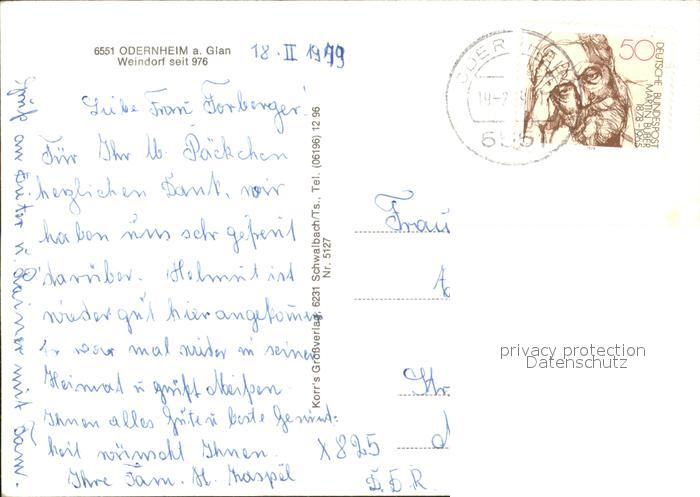 6551 ODERNHEIM a. Glan
Weindorf seit 976
18. II 1979
Liebe Frau Forberger!
Für Ihr lb. Päckchen
herzlichen Dank, wir
haben uns sehr gefreut
darüber. Helmut ist
wieder gut hier angekommen
Er war mal wieder in seiner
Heimat u. grüßt Meißen.
Ihnen alles Gute u. beste Gesund-
heit wünscht Ihnen.
Ihre Fam. H.
Gruß an Dieter u. mit Fam.
Korr's Großverlag, 6231 Schwalbach/Ts., Tel. (06196) 12 96
Nr. 5127
50
DEUTSCHE BUNDESPOST
MARTIN BUBER
1878-1965
Frau
Str.
X 825
D.D.R.
privacy protection
Datenschutz